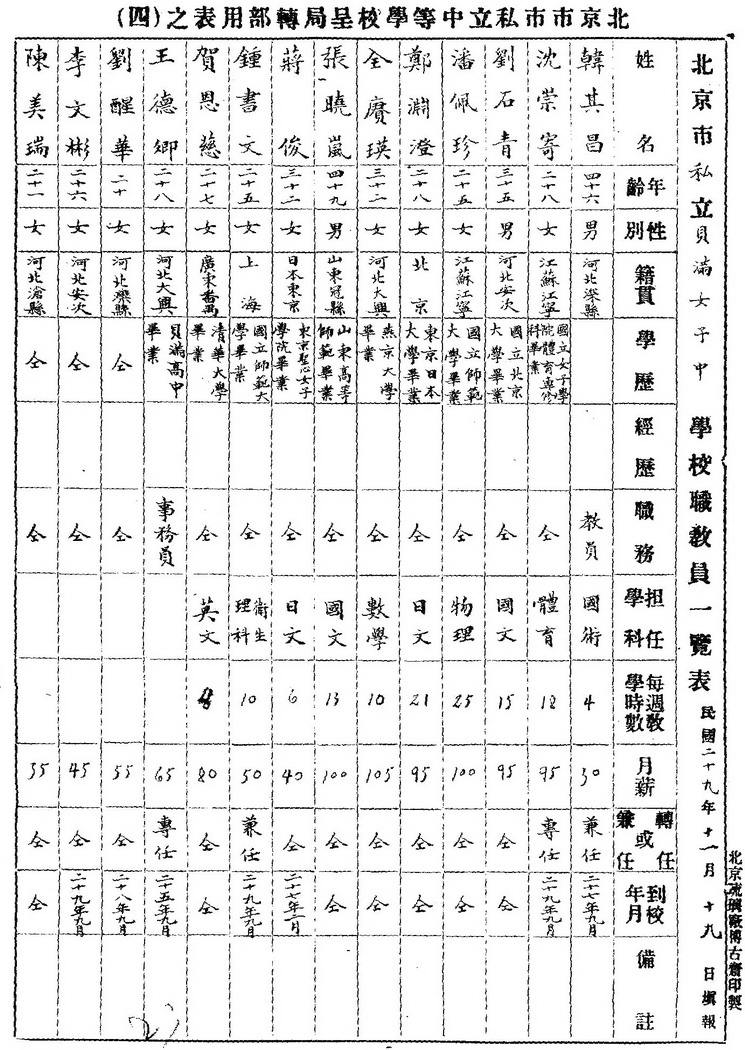 北京市市私立中等學校呈局轉部用表之(四)
北京市私立貝滿女子中學校職教員一覽表 民國二十九年十一月十九日填報
姓名 年齡 性別 籍貫 學歷 經歷 職務 担任學科 每週教學時數 月薪 轉任或兼任 到校年月 備註
韓其昌 四十六 男 河北灤縣 教員 國術 4 30 兼任 二十七年九月
沈崇寄 二十八 女 江蘇江寧 國立女子學院體育專修科畢業 仝 體育 18 95 專任 二十九年九月
劉石青 三十五 男 河北安次 國立北京大學畢業 仝 國文 15 95 仝 仝
潘佩珍 二十五 女 江蘇江寧 國立師範大學畢業 仝 物理 25 100 仝 仝
鄭淵澄 二十八 女 北京 東京日本大學畢業 仝 日文 21 95 仝 仝
全賡瑛 三十二 女 河北大興 燕京大學畢業 仝 數學 10 105 仝 仝
張曉嵐 四十九 男 山東冠縣 山東高等師範畢業 仝 國文 13 100 仝 仝
蔣俊 三十二 女 日本東京 東京聖心女子學院畢業 仝 日文 6 40 仝 二十七年二月
鍾書文 二十五 女 上海 國立師範大學畢業 仝 衛生理科 10 50 兼任 二十九年九月
賀恩慈 二十七 女 廣東番禺 清華大學畢業 仝 英文 80 仝 仝
王德卿 二十八 女 河北大興 貝滿高中畢業 事務員 65 專任 二十五年九月
劉醒華 二十 女 河北灤縣 仝 仝 55 仝 二十八年九月
李文彬 二十六 女 河北安次 仝 仝 45 仝 二十九年九月
陳美瑞 二十一 女 河北滄縣 仝 仝 35 仝 仝
北京琉璃廠博古齋印製